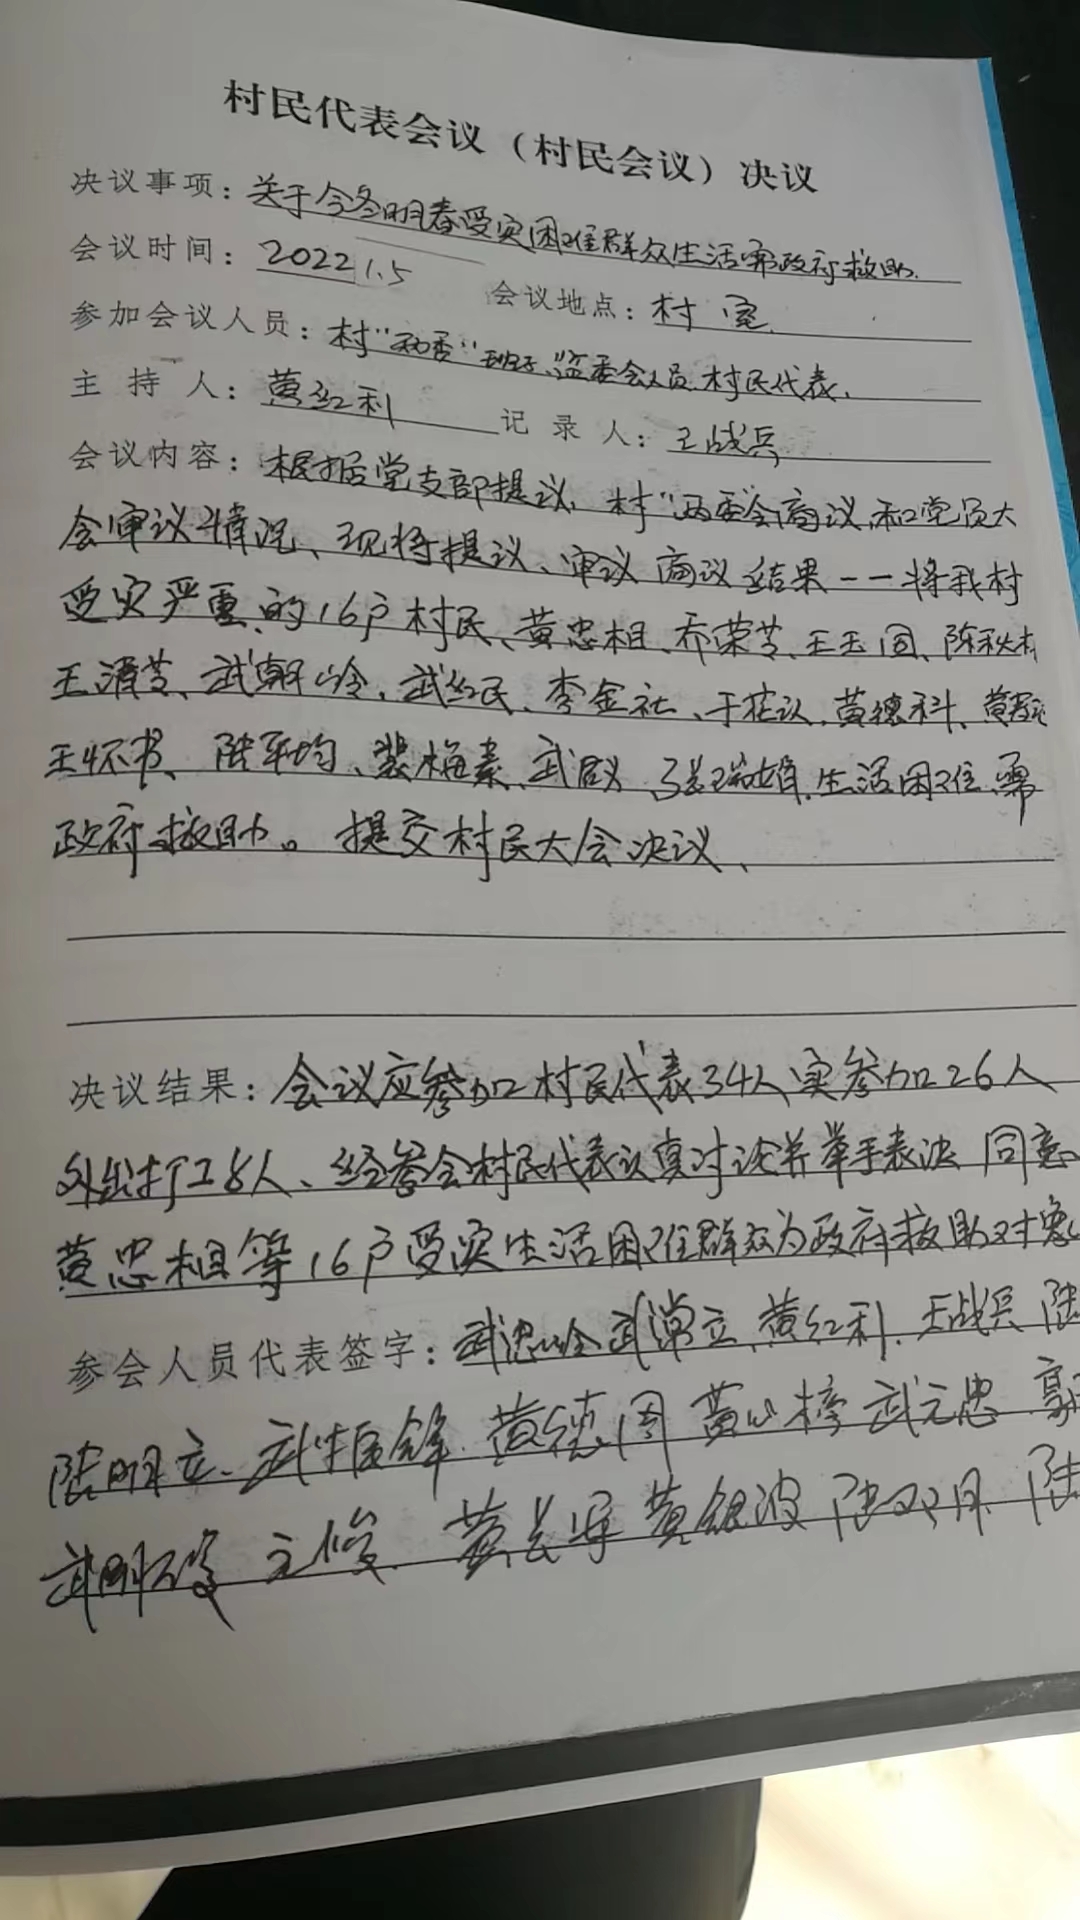 村民代表会议（村民会议）决议
决议事项：关于今冬明春受灾困难群众生活需政府救助.
会议时间：2022.1.5 会议地点：村室
参加会议人员：村“两委”班子、监委会人员、村民代表.
主持人：黄红利 记录人：王战兵
会议内容：根据党支部提议，村“两委”会商议和党员大
会审议情况、现将提议、审议商议结果——将我村
受灾严重的16户村民、黄忠相、乔荣芝、王玉国、陈秋
王清芝、武朝岭、武红民、李金社、于花认、黄德科、黄
王怀书、陆军均、裴梅素、武、张瑞娟.生活困难,需
政府救助。提交村民大会决议、
决议结果：会议应参加村民代表34人实参加26人
外出打工8人、经参会村民代表认真对论并举手表决 同意
黄忠相等16户受灾生活困难群众为政府救助对象
参会人员代表签字：武忠岭 武常立 黄红利、王战兵 陆
陆明立、武振锋、黄德国 黄 武元忠 郭
武明 王俊 黄长军 黄银波 陆双月 陆